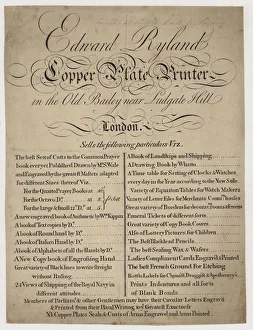 Edward Ryland
Copper Plate Printer
in the Old Bailey near Ludgate Hill
London.
Sells the following particulars Viz.
The best Sett of Cutts to the Common Prayer
book ever yet Published Drawn by Mr. Wale
and Engraved by the greatest Masters adapted
for different Sizes thereof Viz.
For the Quarto Prayer Books at
For the Octavo Do.
A new engraved book of Anthems by Wm. Kippax
A book of Text copies by Do.
A book of Round hand by Do.
A book of Italian Hand by Do.
A book of Alphabets of all the Hands by Do.
A New Copy book of Engrossing Hand
Great variety of Black lines to write Straight
without Ruling
24 Views of Shipping of the Royal Navy in
different attitudes
A Book of Landskips and Shipping
A Drawing Book by Whatto
A Time table for Setting of Clocks & Watches
every day in the Year according to the New Stile
Variety of Equation Tables for Watch Makers
Great variety of Borders for decoys
Funeral Tickets of different sorts
Great variety of Copy Book Covers
Also of Lottery Pictures for Children
The Best Blacklead Pencils
The best Sealing Wax & Wafers
Ladies Compliment Cards Engraved & Printed
The best French Ground for Etching
Bottle Labels for Chymists Druggists & Apothecarys
Prints Indentures and all forts
of Blank Bonds
Members of Parliamt. & other Gentlemen may have their Circular Letters Engraved
& Printed from their Hand Writing to ye Greatest Exactness
NB. Copper Plates Seals & Coats of Arms Engraved and Arms Painted